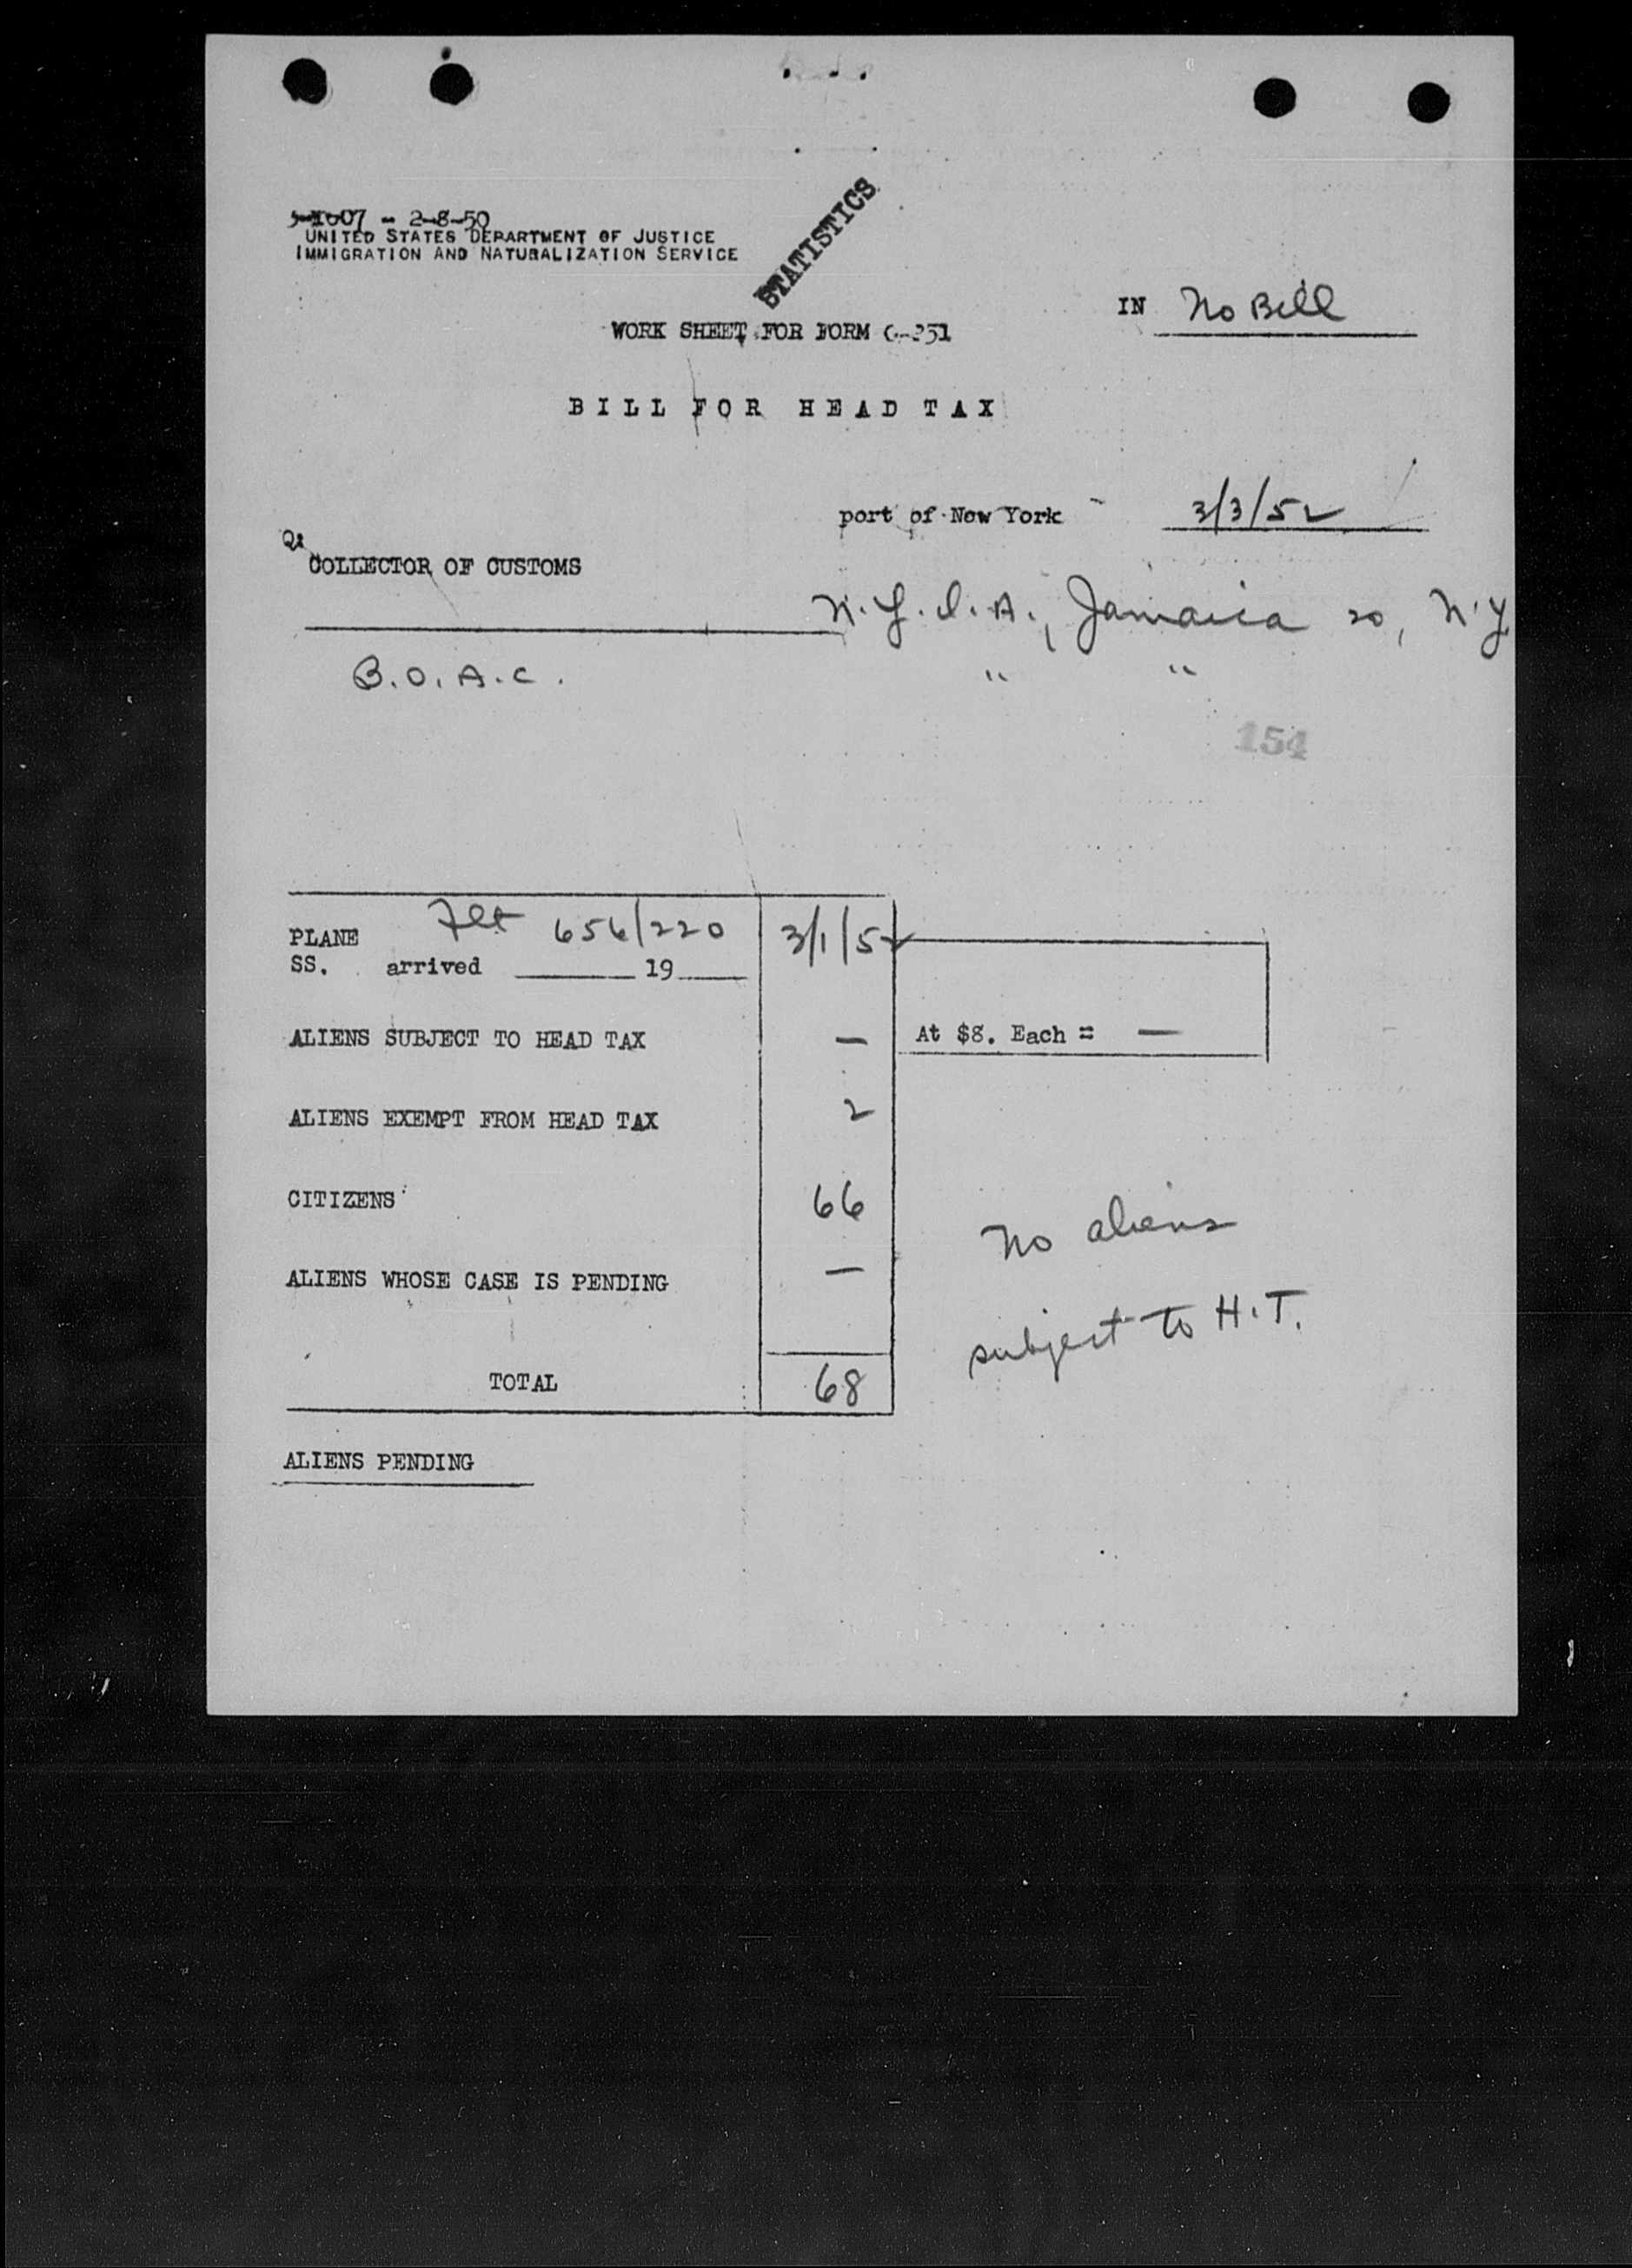 - 2-8-50
UNITED STATES DEPARTMENT OF JUSTICE
IMMIGRATION AND NATURALIZATION SERVICE
STATISTICS
IN No Bill
WORK SHEET FOR FORM G-251
BILL FOR HEAD TAX
port of New York 3/3/52
COLLECTOR OF CUSTOMS
N.Y.I.A., Jamaica 20, N.Y
B.O.A.C. " "
154
PLANE Flt 656/220 3/1/52
SS. arrived 19
ALIENS SUBJECT TO HEAD TAX — At $8. Each = —
ALIENS EXEMPT FROM HEAD TAX 2
CITIZENS 66
No aliens
ALIENS WHOSE CASE IS PENDING —
subject to H.T.
TOTAL 68
ALIENS PENDING